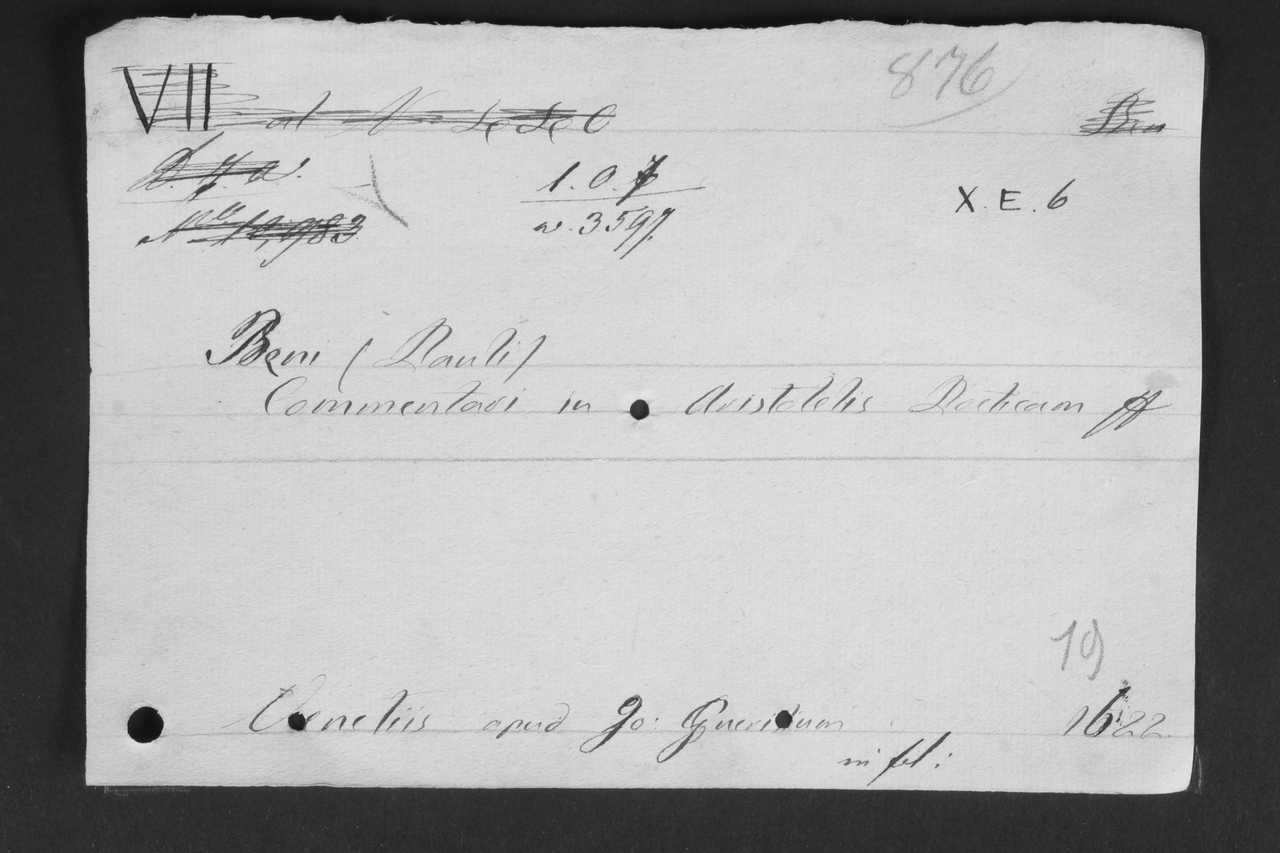 VII
876
Ben
1.0.7
X. E. 6
N° 12,983
w. 3597.
Beni (Pauli)
Commentari in Aristotelis Poeticam ff
19
Venetiis apud Jo: Guerilium 1622
in fol: